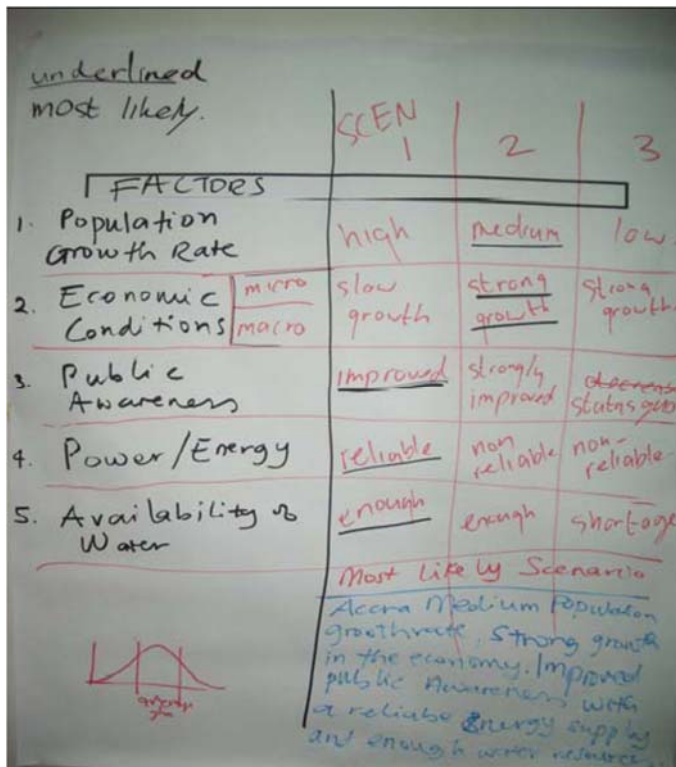 underlined
most likely.
SCEN
1 2 3
FACTORS
1. Population
Growth Rate
high medium low.
2. Economic
Conditions
micro
macro
slow
growth
strong
growth
strong
growth.
3. Public
Awareness
improved
strongly
improved
status quo
4. Power/Energy
reliable
non
reliable
non-
reliable
5. Availability of
Water
enough enough shortage
Most Likely Scenario
Accra Medium Population
growthrate. Strong growth
in the economy. Improved
public Awareness with
a reliabe Energy supply
and enough water resources.